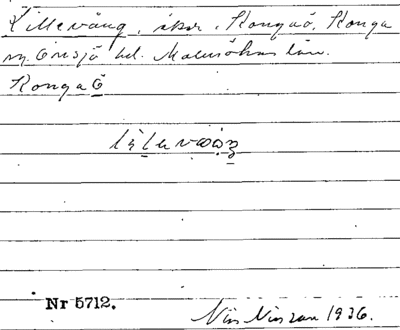 Lillevång, åker, Kongaö, Konga
sn, Onsjö hd. Malmöhus län.
Konga Ö
Nr 5712.
Nils Nilsson 1936.